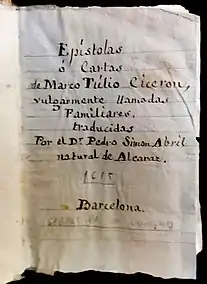 Epistolas
ó Cartas
de Marco Túlio Ciceron,
vulgarmente llamadas
Familiares.
traducidas
Por el Dr. Pedro Simon Abril
natural de Alcaraz.
1615
Barcelona.